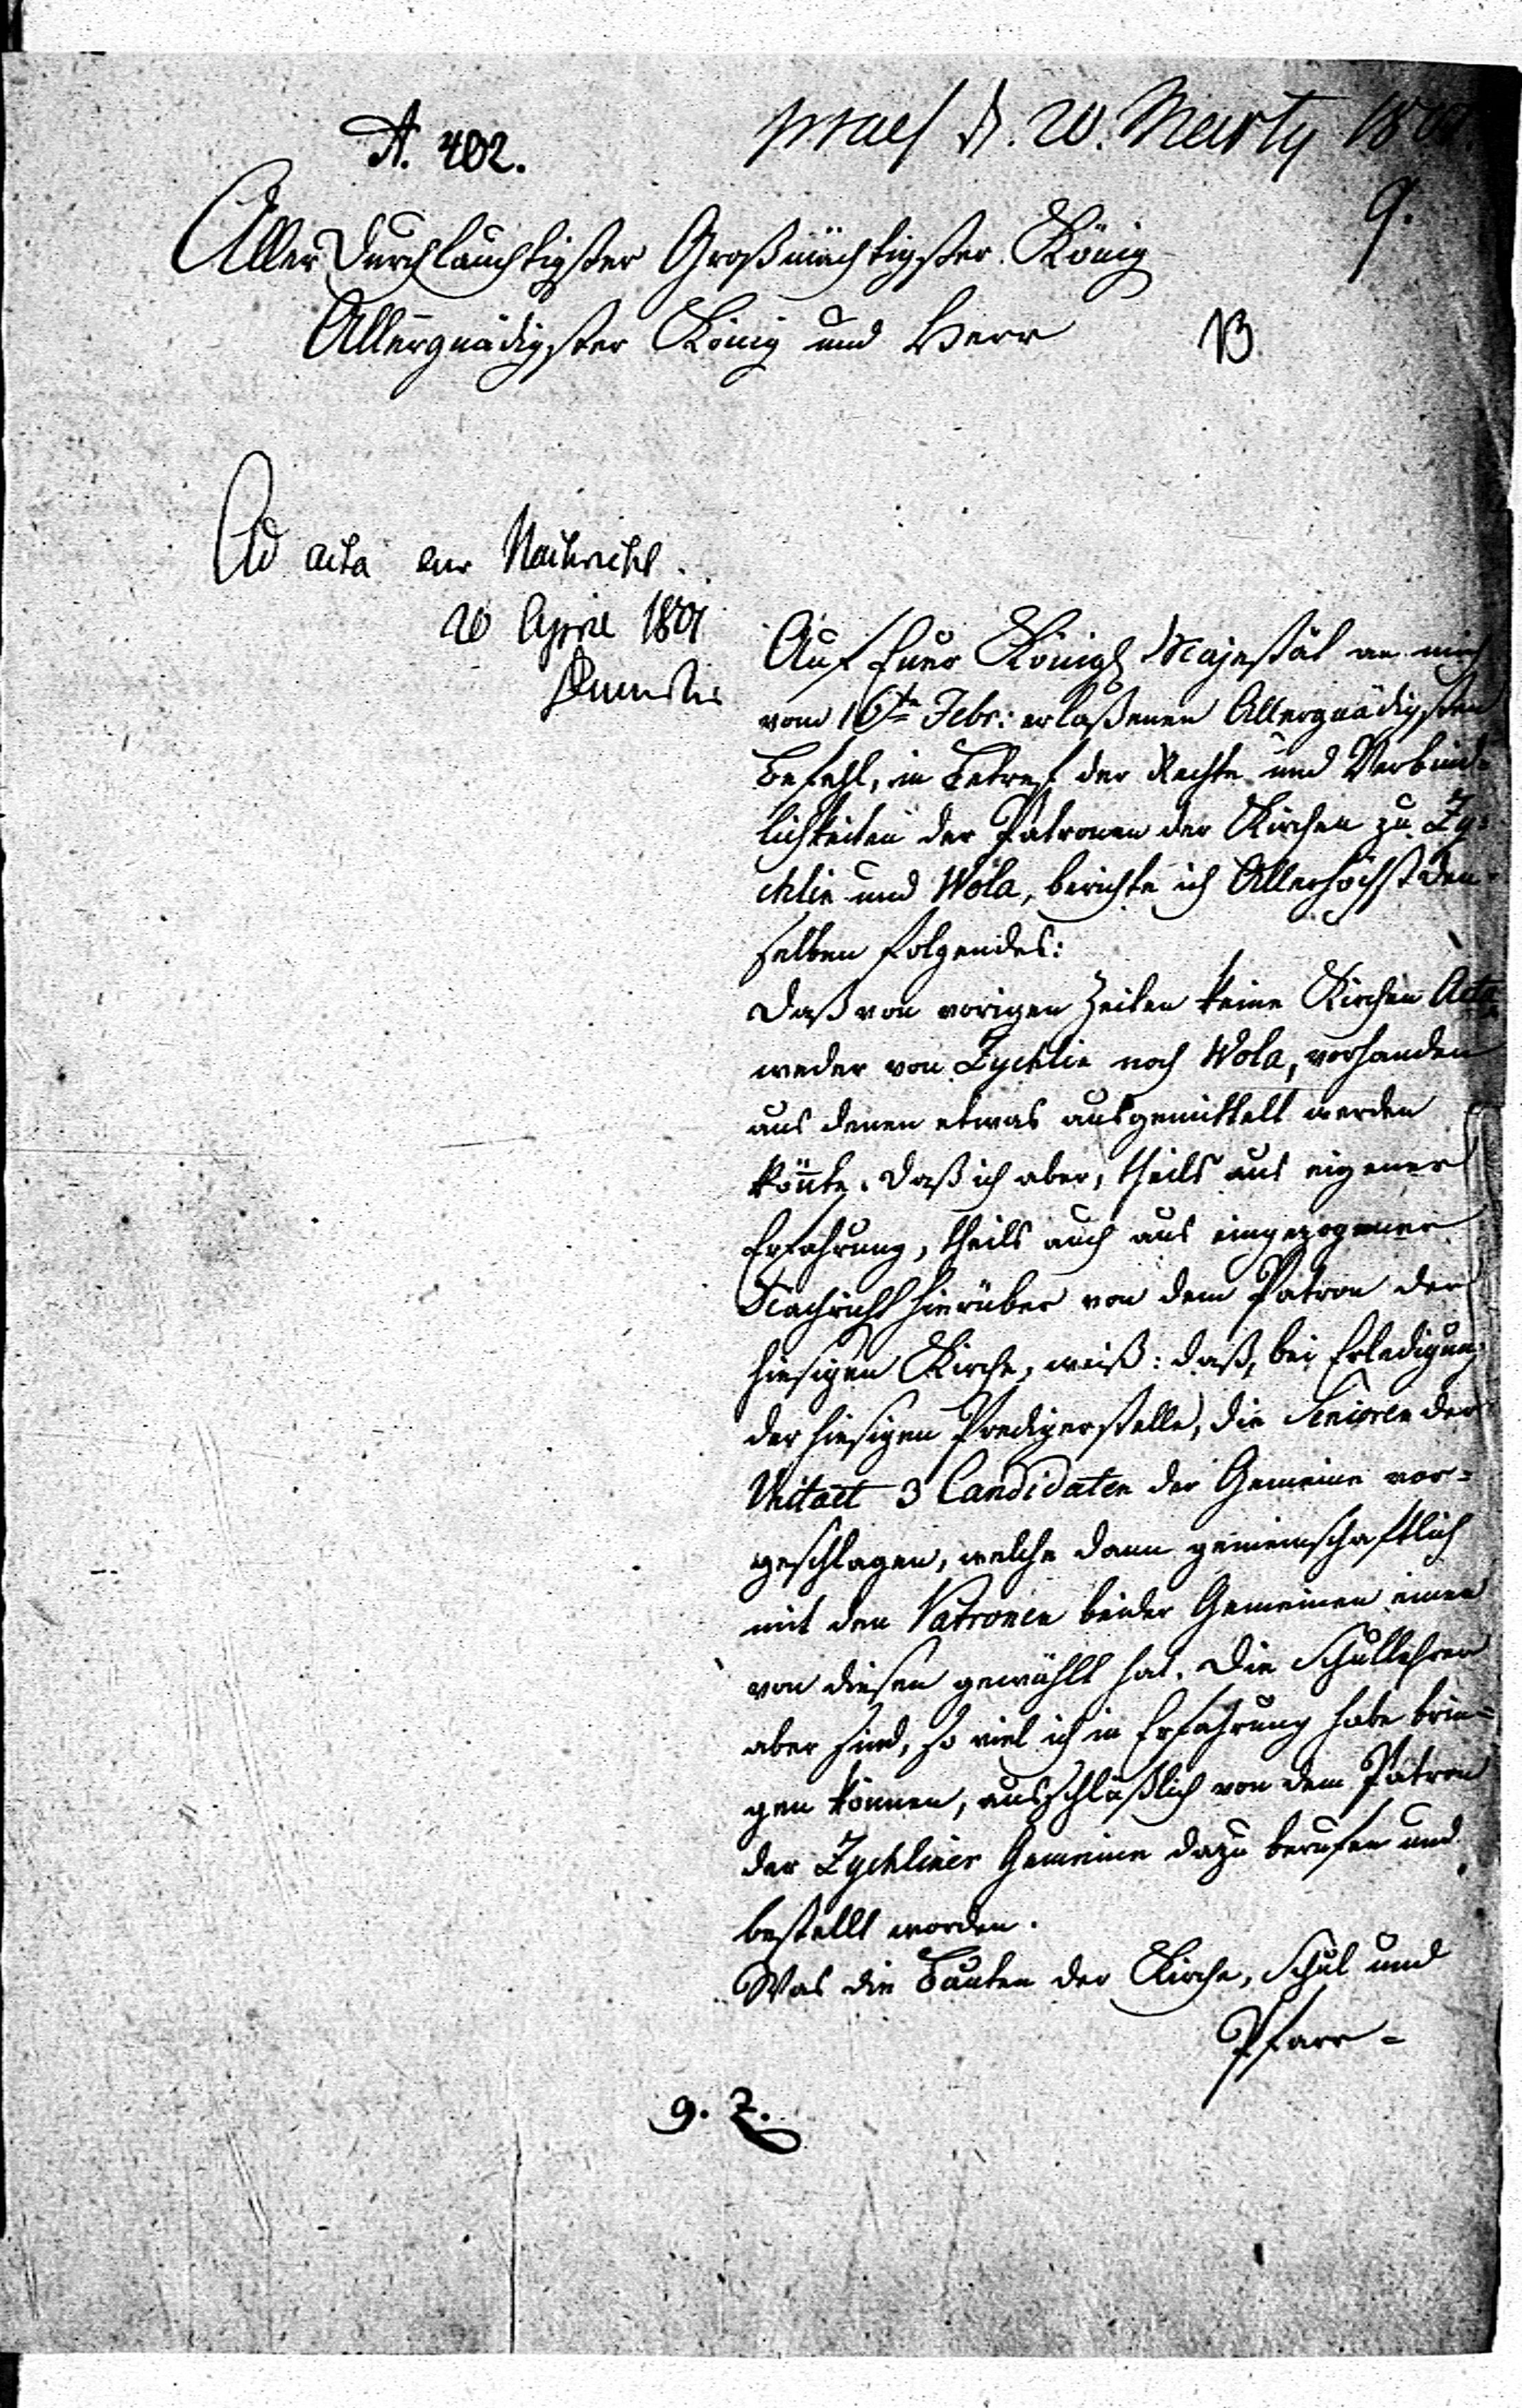 A. 402.
praes d. 20. Marty 180
9.
Aller Durchlauchtigster Großmächtigster König
Allergnädigster König und Herr
13.
Ad acta zur Nachricht.
20 April 1801
Auf Euer Königl Majestät an mich
vom 16ten Febr: erlaßenen Allergnädigsten
Befehl, in Betref der Rechte und Verbind-
lichkeiten der Patronen der Kirchen zu Zy-
chlin und Wola, berichte ich Allerhöchst den-
selben folgendes:
Daß von vorigen Zeiten keine Kirchen Acta
weder von Zychlin noch Wola, vorhanden
aus denen etwas ausgemittelt werden
könnte. Daß ich aber, theils aus eigener
Erfahrung, theils auch aus eingezogener
Nachricht hierüber von dem Patron der
hiesigen Kirche, weiß: daß, bei Erledigung
der hiesigen Predigerstelle, die Senioren der
Unitaet 3 Candidaten der Gemeine vor-
geschlagen, welche dann gemeinschaftlich
mit den Patronen beider Gemeinen einen
von diesen gewählt hat. Die Schullehrer
aber sind, so viel ich in Erfahrung habe brin-
gen können, ausschlüßlich von dem Patron
der Zychliner Gemeine dazu berufen und
bestellt worden.
Was die Bauten der Kirche, Schul und
Pfarr-
9. Z.